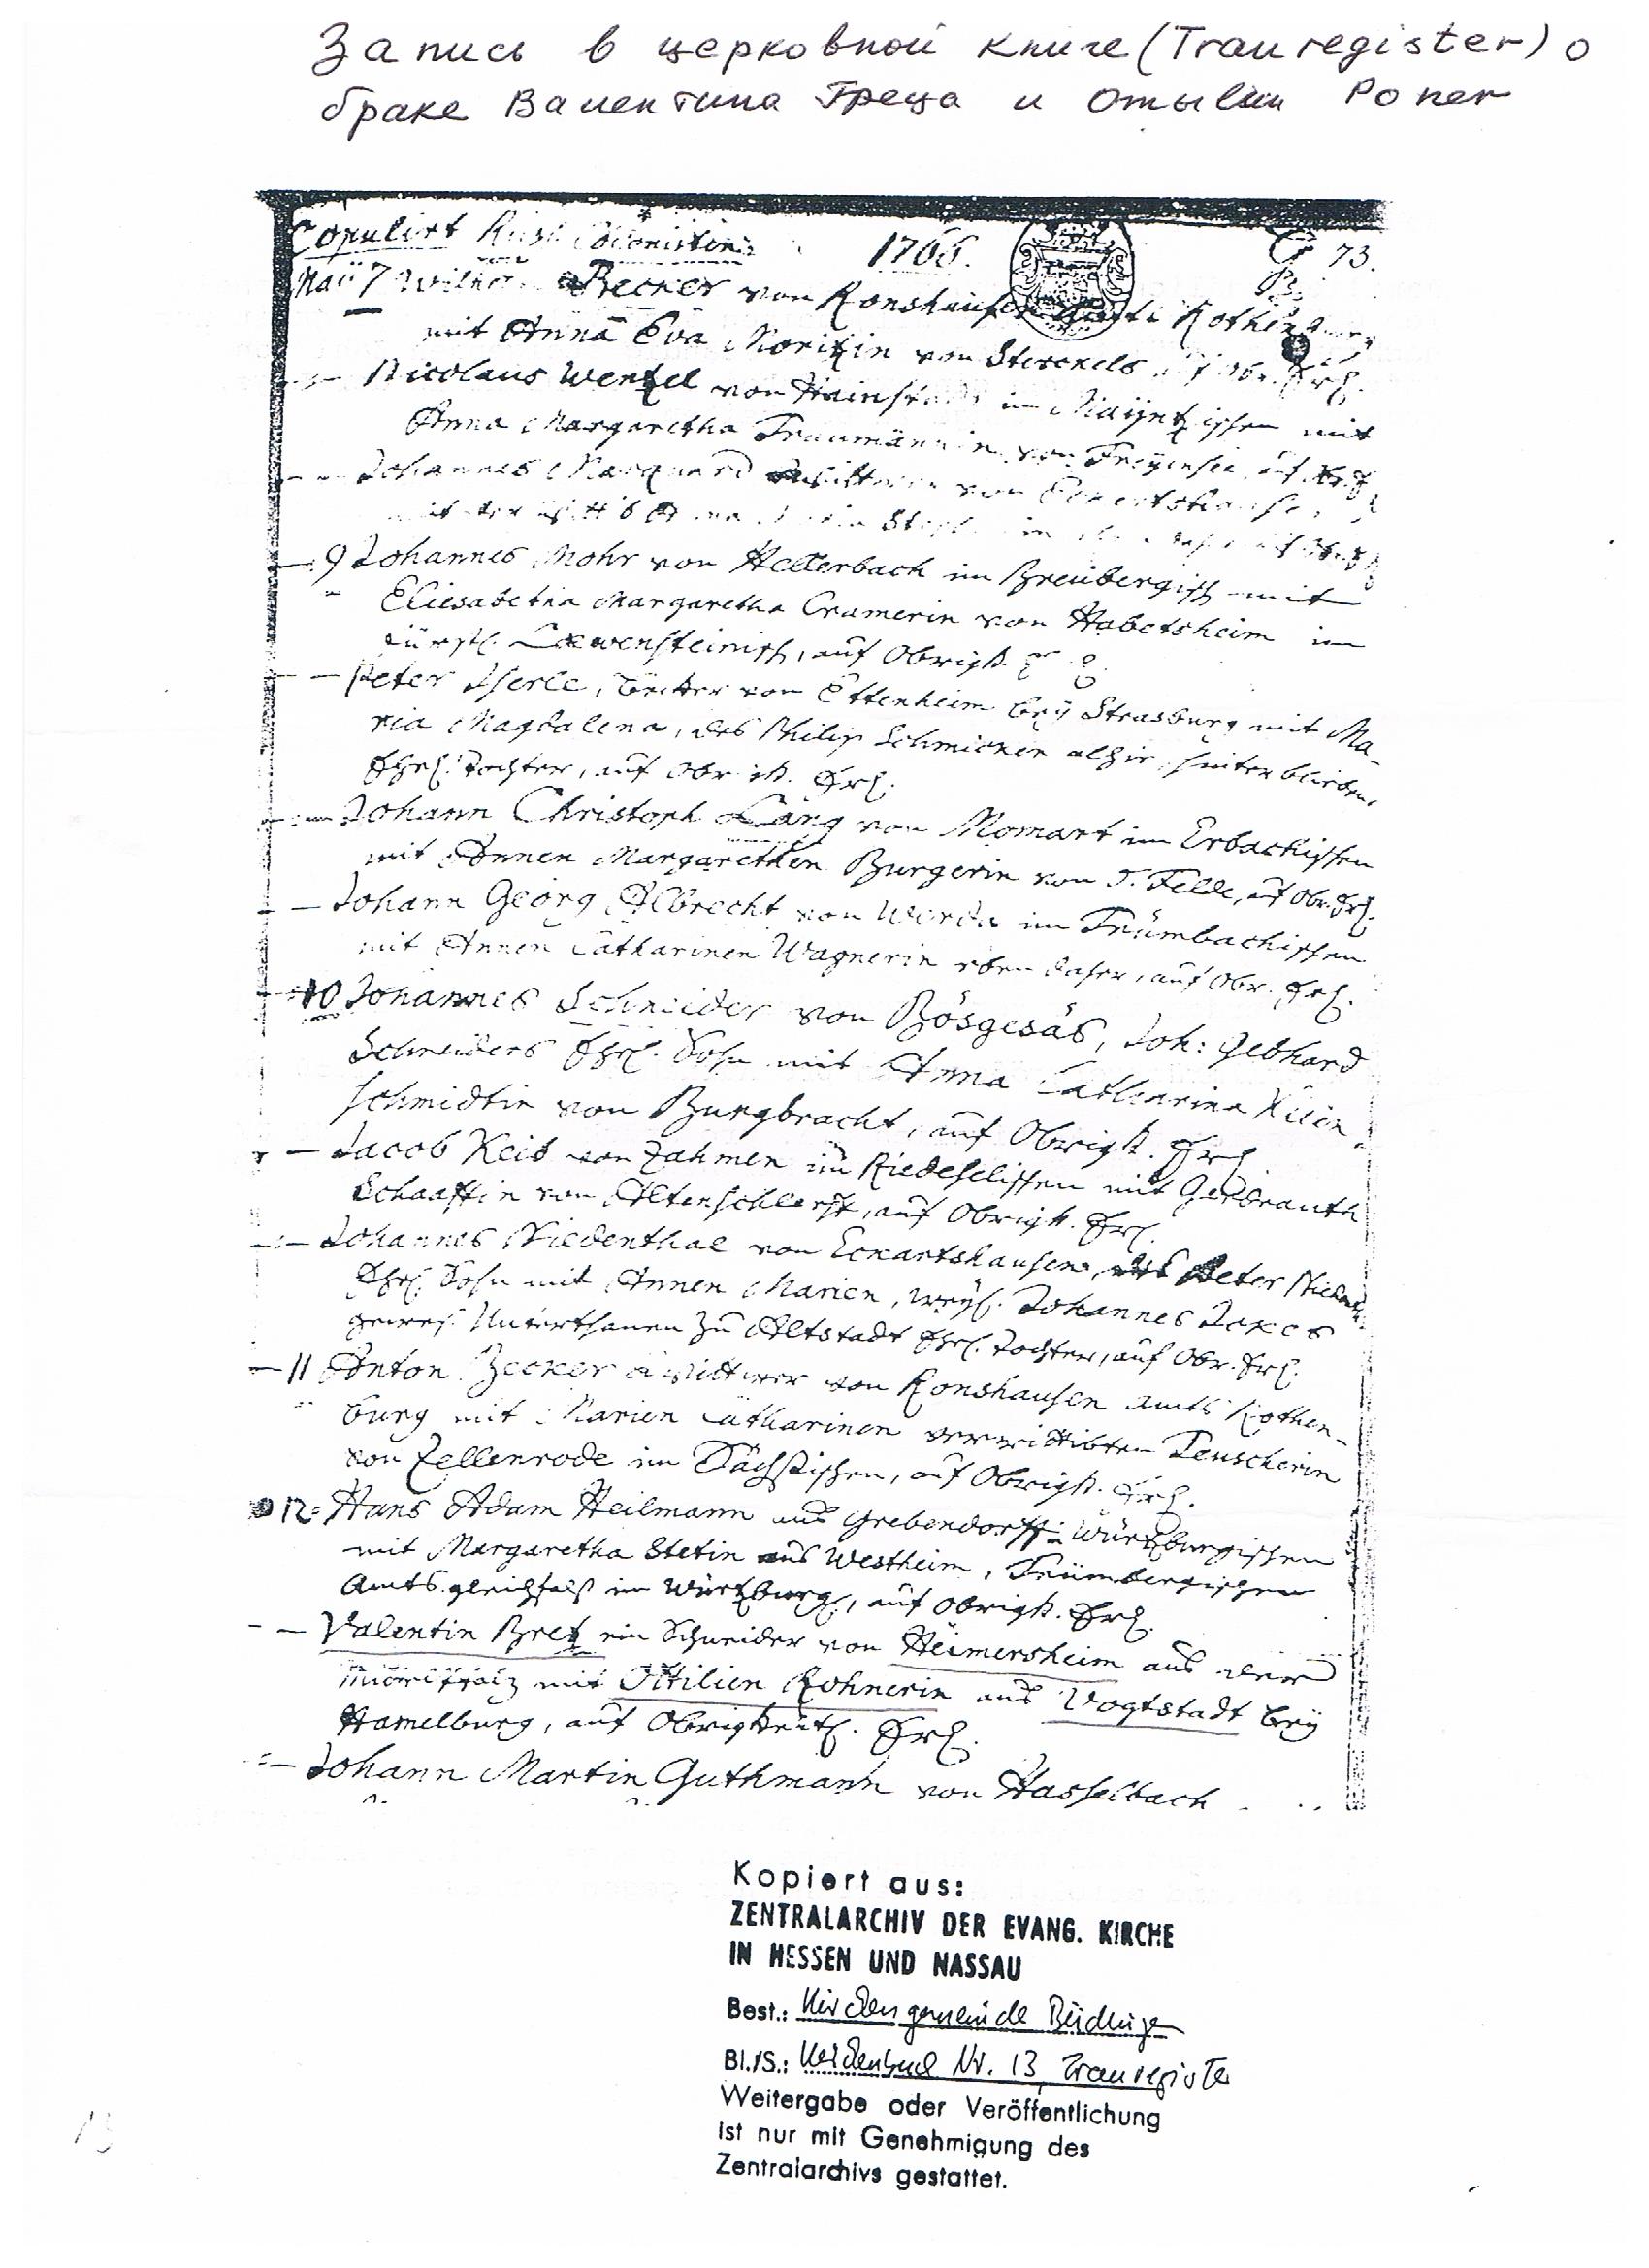 Запись в церковной книге (Trauregister) о
браке Валентина Греца и Отылии Ронер
Copulirt Russ. Colonisten 1766. 73.
Maii 7 Becker von Ronshausen Rothenburg
mit Anna Eva Moritzin von Sterckels auf Obr. Erl.
Nicolaus Wentzel von Hainstadt im Mayntzischen mit
Anna Margaretha Traumännin von Freyensee, auf Obr. Erl.
Johannes Marquard Wittwer von Eckartshausen,
9 Johannes Mohr von Hetterbach im Breubergisch mit
Eliesabetha Margaretha Cramerin von Habetsheim im
Fürstl. Loewensteinisch, auf Obrigk.
Peter Iserle, von Ettenheim bey Strasburg mit Ma-
ria Magdalena, des Philip Schmicken alhier hinterbliebene
Ehel. Tochter, auf Obrigk. Erl.
Johann Christoph Lang von Momart im Erbachischen
mit Annen Margarethen Burgerin von J. Felde, auf Obr. Erl.
Johann Georg Albrecht von Werda im Trümbachischen
mit Annen Catharinen Wagnerin eben daher, auf Obr. Erl.
10 Johannes Schneider von Bösgesäs, Joh: Gebhard
Schneiders Ehel. Sohn mit Anna Catharina Klein-
schmidtin von Burgbracht, auf Obrigk. Erl.
Jacob Keib von Zahmen im Riedeselischen mit Gerdrauth
Schaaffin von Altenschlerff, auf Obrigk. Erl.
Johannes Niedenthal von Eckartshausen, des Peter
Ehel. Sohn mit Annen Marien, weyl. Johannes
gewes. Unterthanen zu Altstadt Ehel. Tochter, auf Obr. Erl.
11 Anton Becker Wittwer von Ronshausen Amts Rothen-
burg mit Marien Catharinen verwittibten Teuscherin
von Zellenrode im Sächsischen, auf Obrigk. Erl.
12 Hans Adam Heilmann aus Grebendorff Würtzburgischen
mit Margaretha Stetin aus Westheim, Trümbergischen
Amts gleichfals im Würtzburg., auf Obrigk. Erl.
Valentin Bretz ein Schneider von Heimersheim aus der
mit Ottilien Rohnerin aus Vogtstadt bey
Hamelburg, auf Obrigkeitl. Erl.
Johann Martin Guthmann von Hasselbach
Kopiert aus:
ZENTRALARCHIV DER EVANG. KIRCHE
IN HESSEN UND NASSAU
Best.: Kirchengemeinde Büdingen
Bl./S.: Kirchenbuch Nr. 13, Trauregister
Weitergabe oder Veröffentlichung
ist nur mit Genehmigung des
Zentralarchivs gestattet.
13